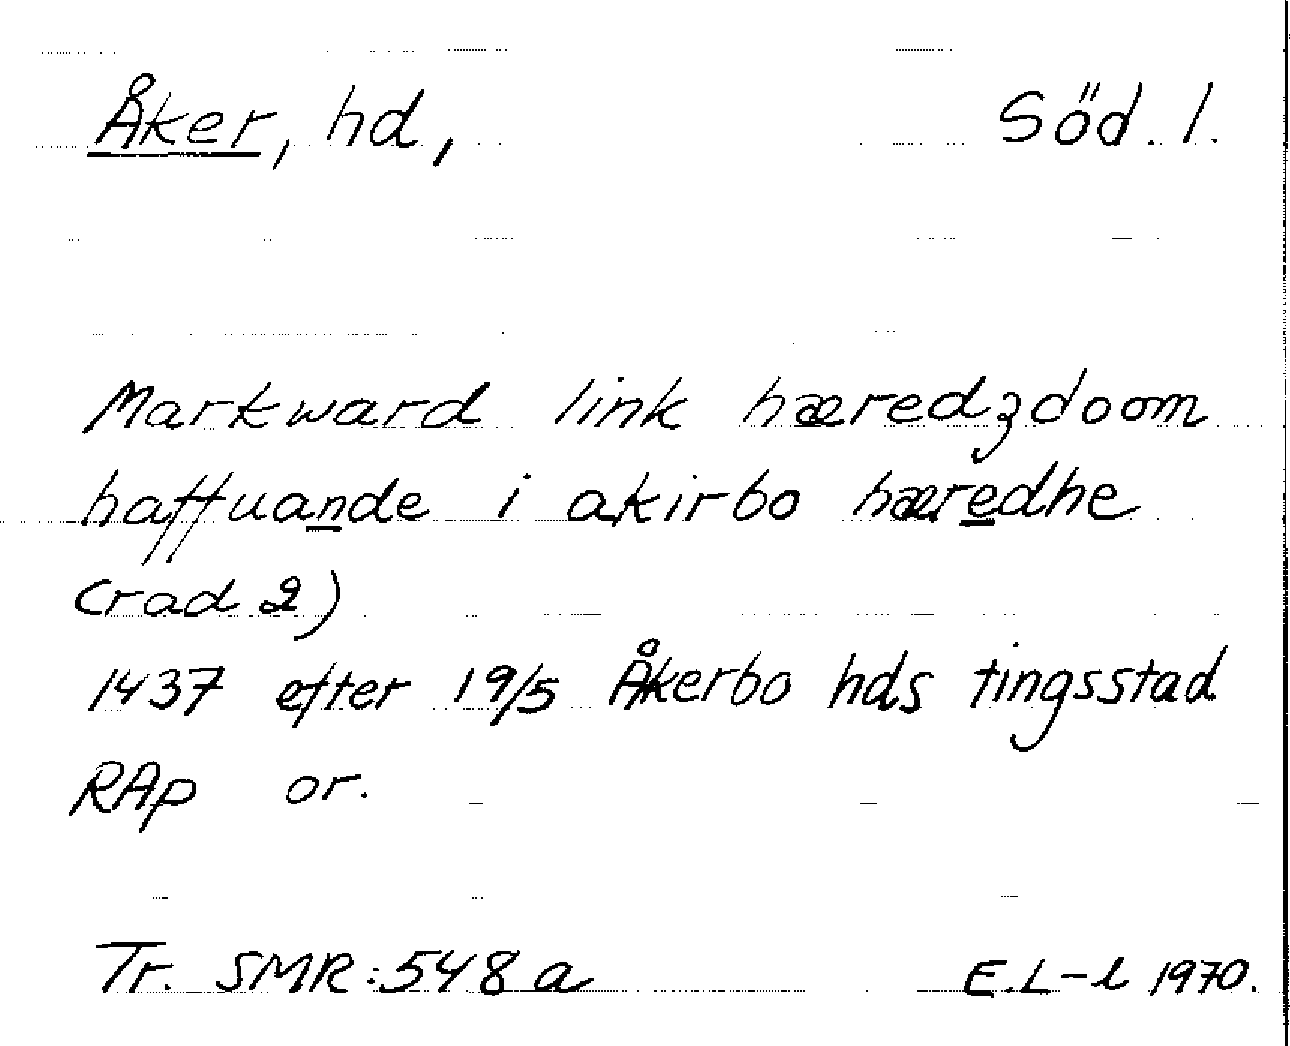 Åker, hd, Söd. l.
Markward link hæredzdoom
haffuande i akirbo hæredhe
(rad 2)
1437 efter 19/5 Åkerbo hds tingsstad
RAp or.
Tr. SMR:548a E.L-l 1970.